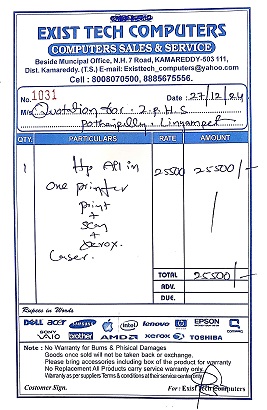 EXIST TECH COMPUTERS
COMPUTERS SALES & SERVICE
Beside Muncipal Office, N.H. 7 Road, KAMAREDDY-503 111,
Dist. Kamareddy. (T.S.) E-mail: Existtech_computers@yahoo.com
Cell : 8008070500, 8885675556.
No. 1031 Date : 27/12/24
M/s Quotation for Z.P.H.S
Lingampet
QTY. PARTICULARS RATE AMOUNT
1 Hp All in 25500 25500/-
One printer
print
+
Scan
+
Xerox.
Laser.
TOTAL 25500/-
ADV.
DUE.
Rupees in Words
DELL acer SAMSUNG intel lenovo hp EPSON COMPAQ
SONY VAIO brother AMD XEROX TOSHIBA
Note : No Warranty for Burns & Phisical Damages
Goods once sold will not be taken back or exchange.
Please bring accessories including box of the product for warranty
No Replacement All Products carry service warranty only.
Warranty as per suppliers Terms & conditions at their service center only
Customer Sign. For : Exist Tech Computers